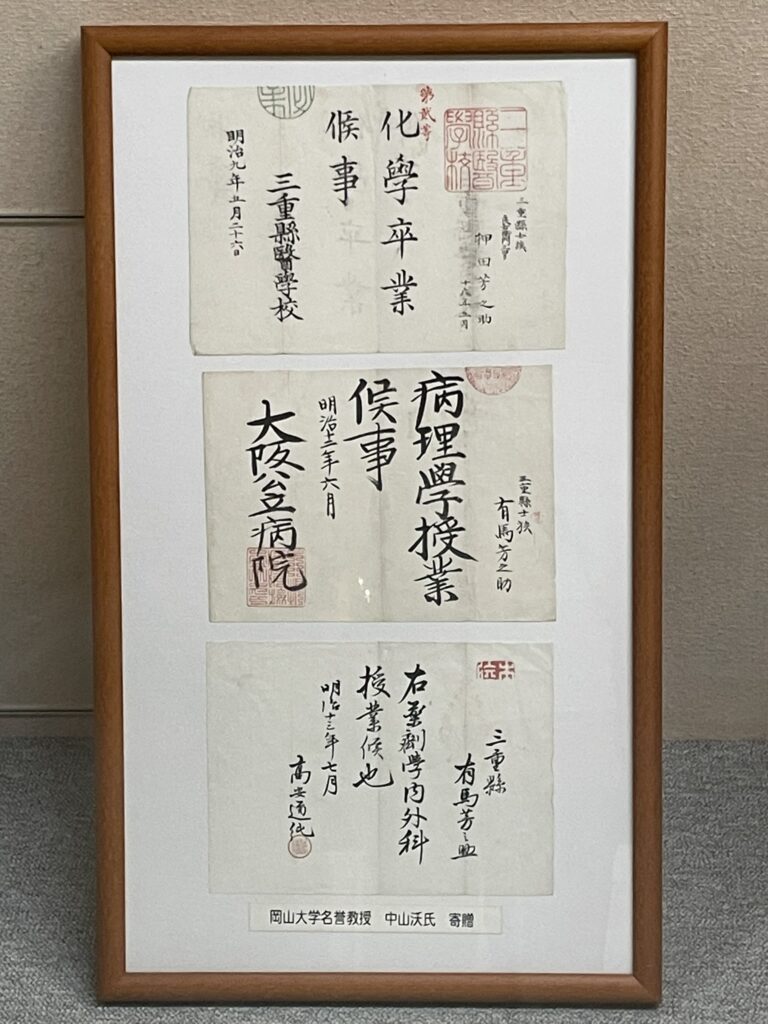 第貳等
三重縣醫學校
三重縣士族
柙田芳之助
十八年五月
化學卒業
候事
三重縣醫學校
明治九年五月二十六日
三重縣士族
有馬芳之助
病理學授業
候事
明治十二年六月
大阪公立病院
三重縣
有馬芳之助
右薬劑學内外科
授業候也
明治十三年七月
高安道純
岡山大学名誉教授 中山沃氏 寄贈